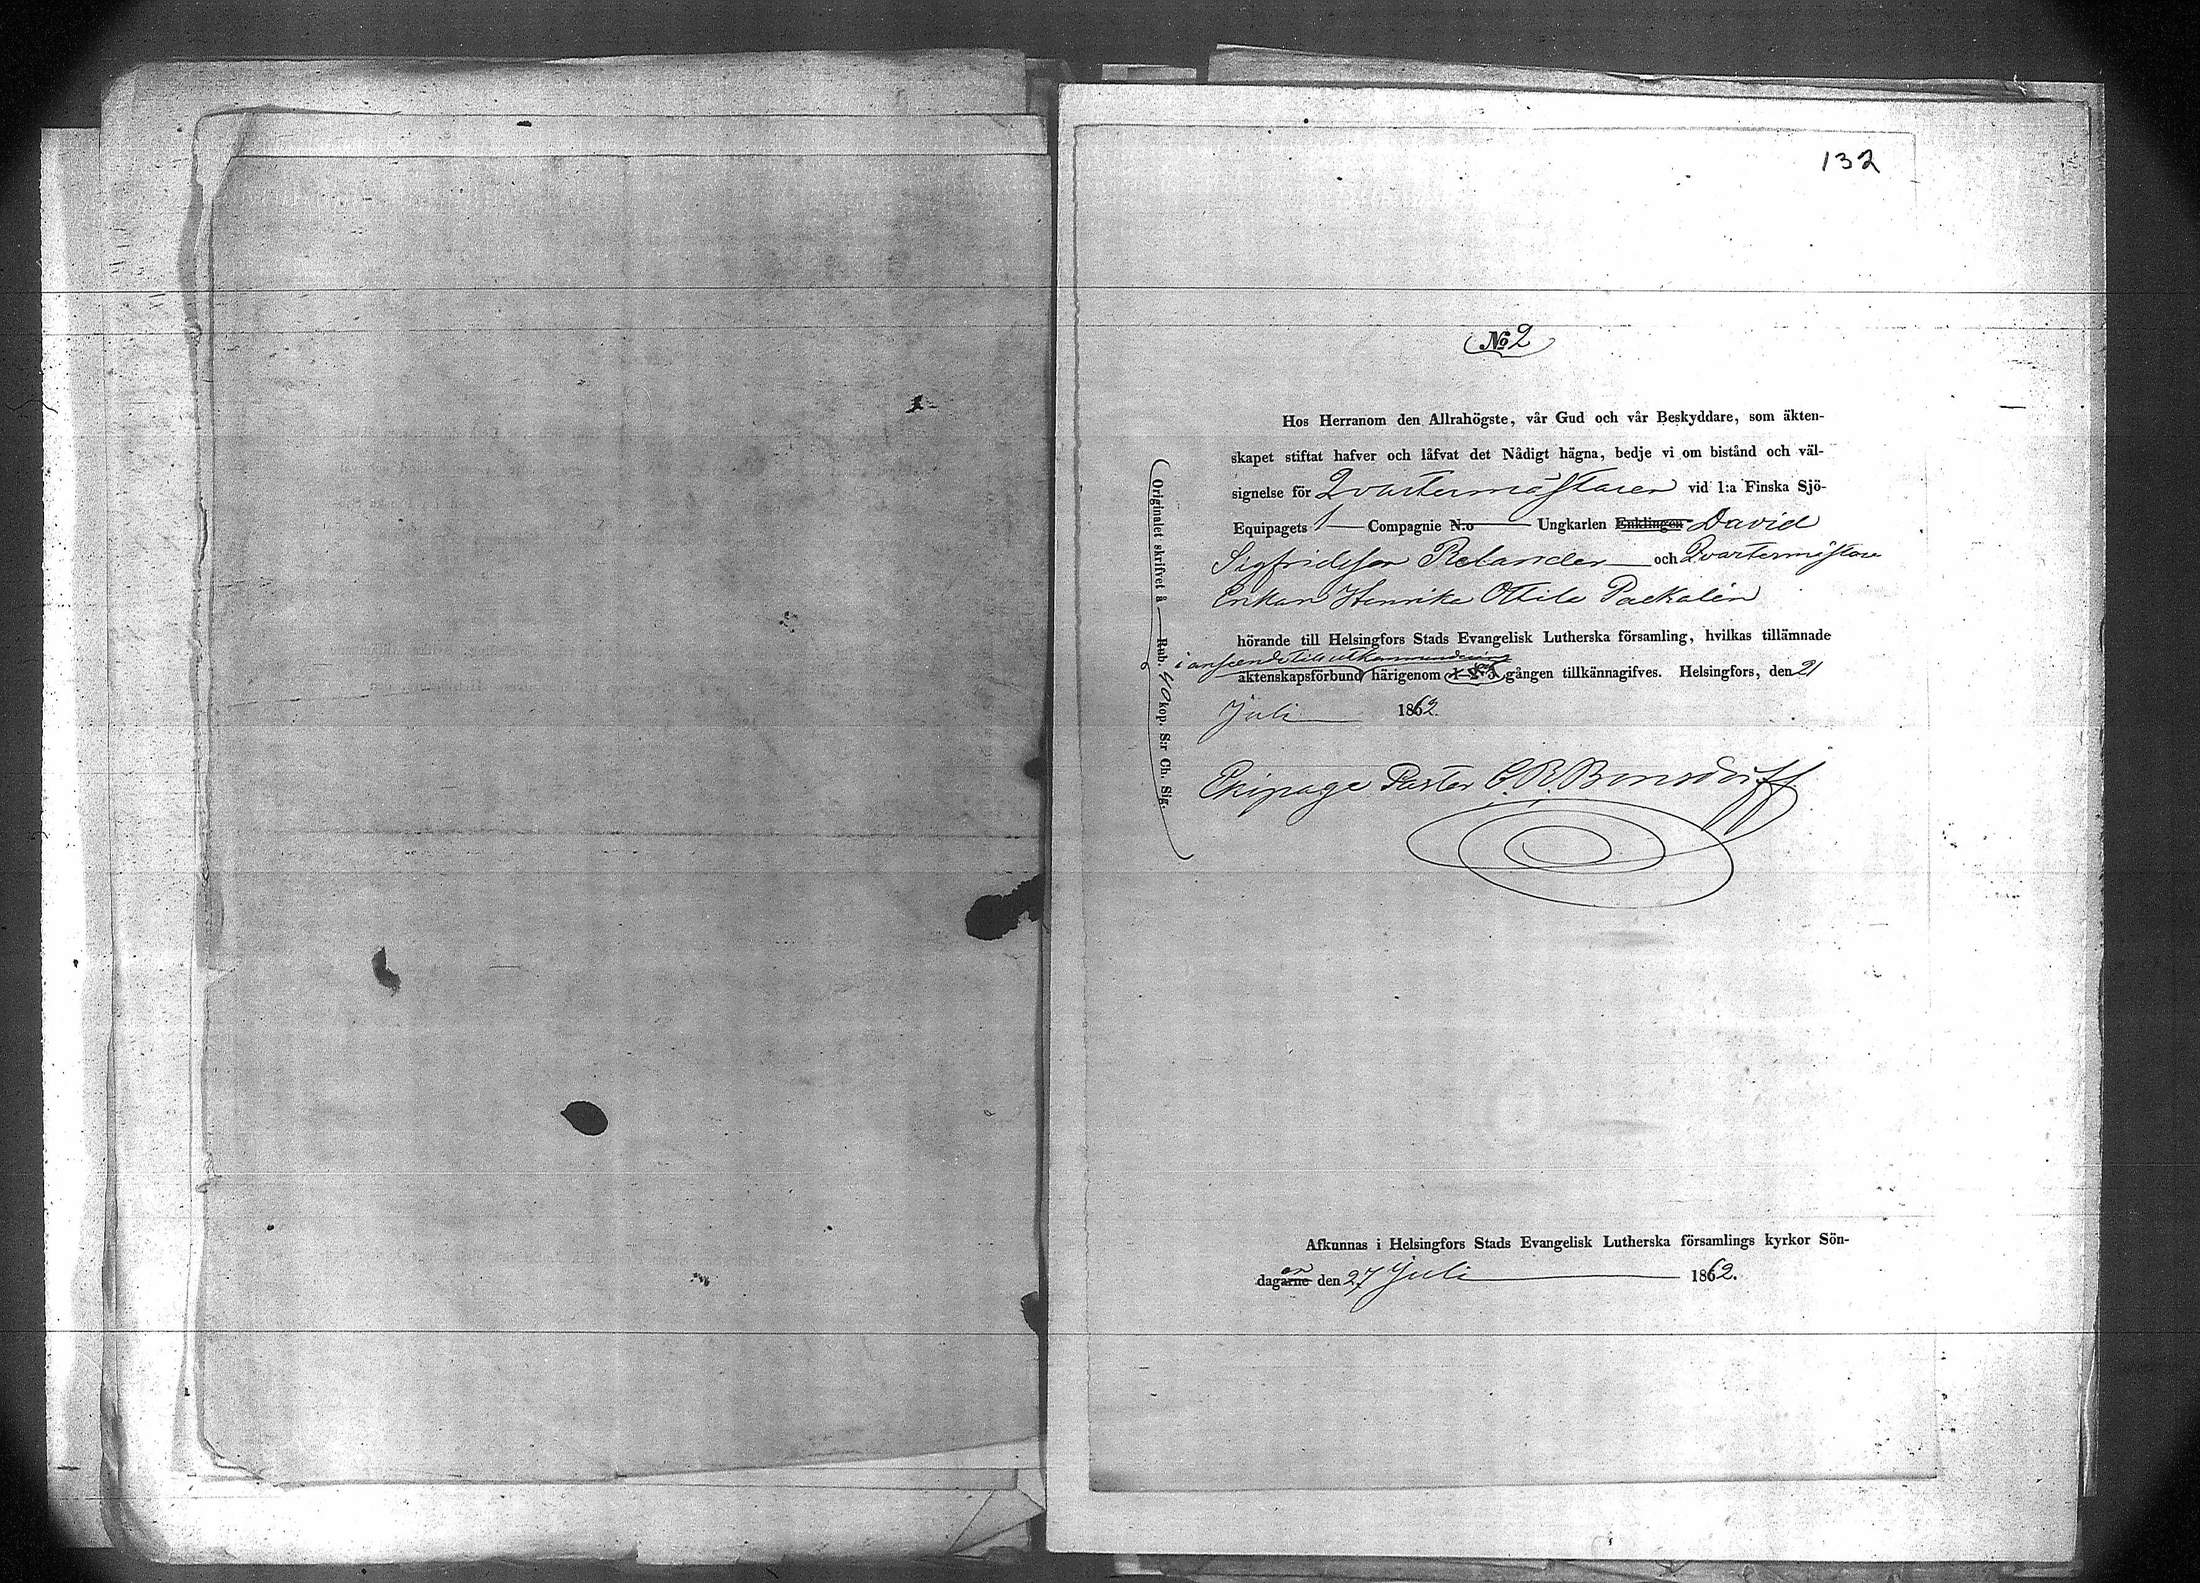 132
No 2
Hos Herranom den Allrahögste, vår Gud och vår Beskyddare, som äkten-
skapet stiftat hafver och låfvat det Nådigt hägna, bedje vi om bistånd och väl-
signelse för Qvartermästaren vid 1:a Finska Sjö-
Equipagets 1 Compagnie N:o Ungkarlen Enklingen David
Sigfridsson Relander och Qvartermästare
Enkan Henrika Ottila Packalén
hörande till Helsingfors Stads Evangelisk Lutherska församling, hvilkas tillämnade
i anseende till utkommendering
äktenskapsförbund härigenom gången tillkännagifves. Helsingfors, den 21
Juli 1862.
Ekipage Pastor C. R. Bonsdorff
Originalet skrifvet å — Rub. 40 kop. S:r Ch. Sig.
Afkunnas i Helsingfors Stads Evangelisk Lutherska församlings kyrkor Sön-
en
dagarne den 27 Juli 1862.